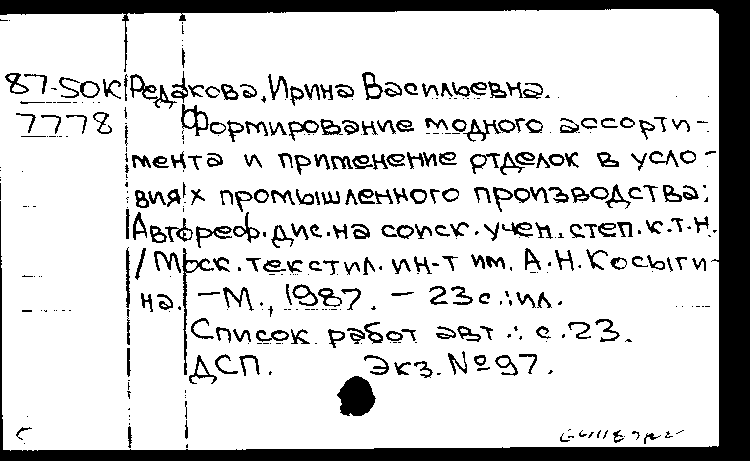 87-50К Редакова, Ирина Васильевна.
7778 Формирование модного ассорти-
мента и применение отделок в усло-
виях промышленного производства:
Автореф. дис. на соиск. учен. степ. к.т.н.
/ Моск. текстил. ин-т им. А.Н. Косыги-
на. – М., 1987. – 23 с.: ил.
Список работ авт.: с. 23.
ДСП. Экз. №97.